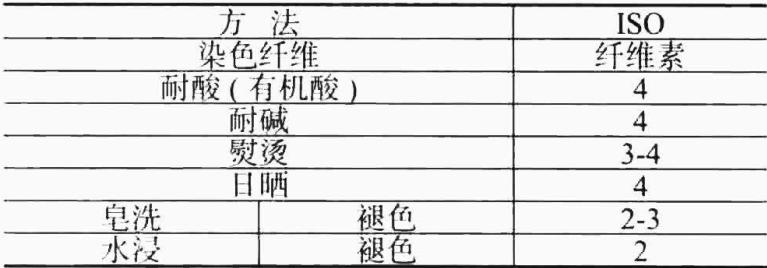 方 法 ISO
染色纤维 纤维素
耐酸 ( 有机酸 ) 4
耐碱 4
熨烫 3-4
日晒 4
皂洗 褪色 2-3
水浸 褪色 2